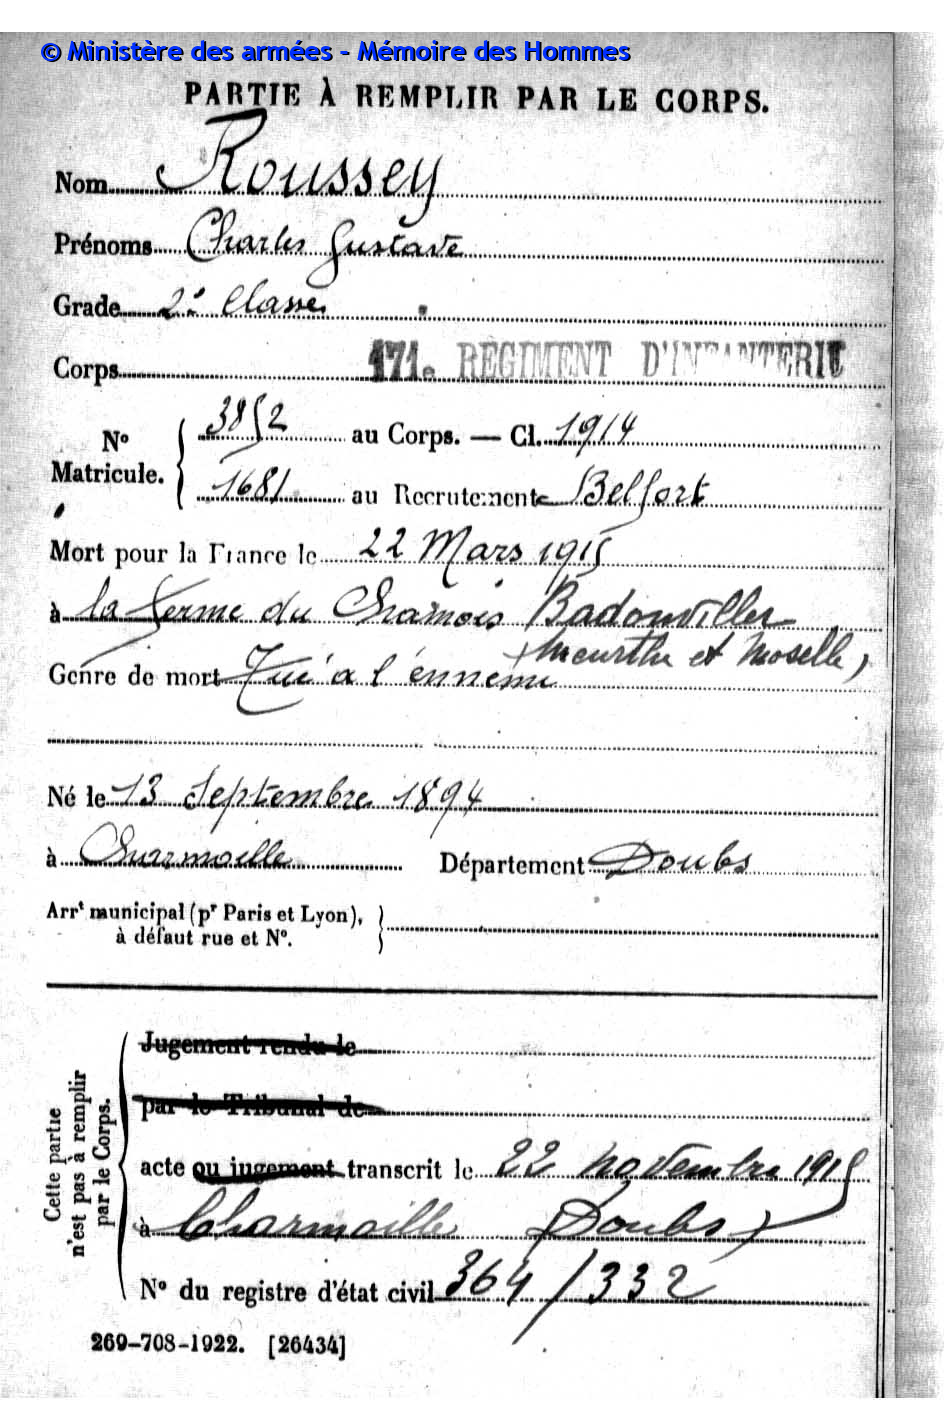 © Ministère des armées - Mémoire des Hommes
PARTIE À REMPLIR PAR LE CORPS.
Nom Roussey
Prénoms Charles Gustave
Grade 2e Classe
Corps 171e RÉGIMENT D'INFANTERIE
N° Matricule. { 3852 au Corps. — Cl. 1914
1681 au Recrutement Belfort
Mort pour la France le 22 Mars 1915
à la ferme du Chamois Badonviller
(Meurthe et Moselle)
Genre de mort Tué a l'ennemi
Né le 13 Septembre 1894
à Charmoille Département Doubs
Arrt municipal (pr Paris et Lyon),
à défaut rue et N°. }
Cette partie
n'est pas à remplir
par le Corps.
Jugement rendu le
par le Tribunal de
acte ou jugement transcrit le 22 novembre 1915
à Charmoille (Doubs)
N° du registre d'état civil 364/332
269-708-1922. [26434]